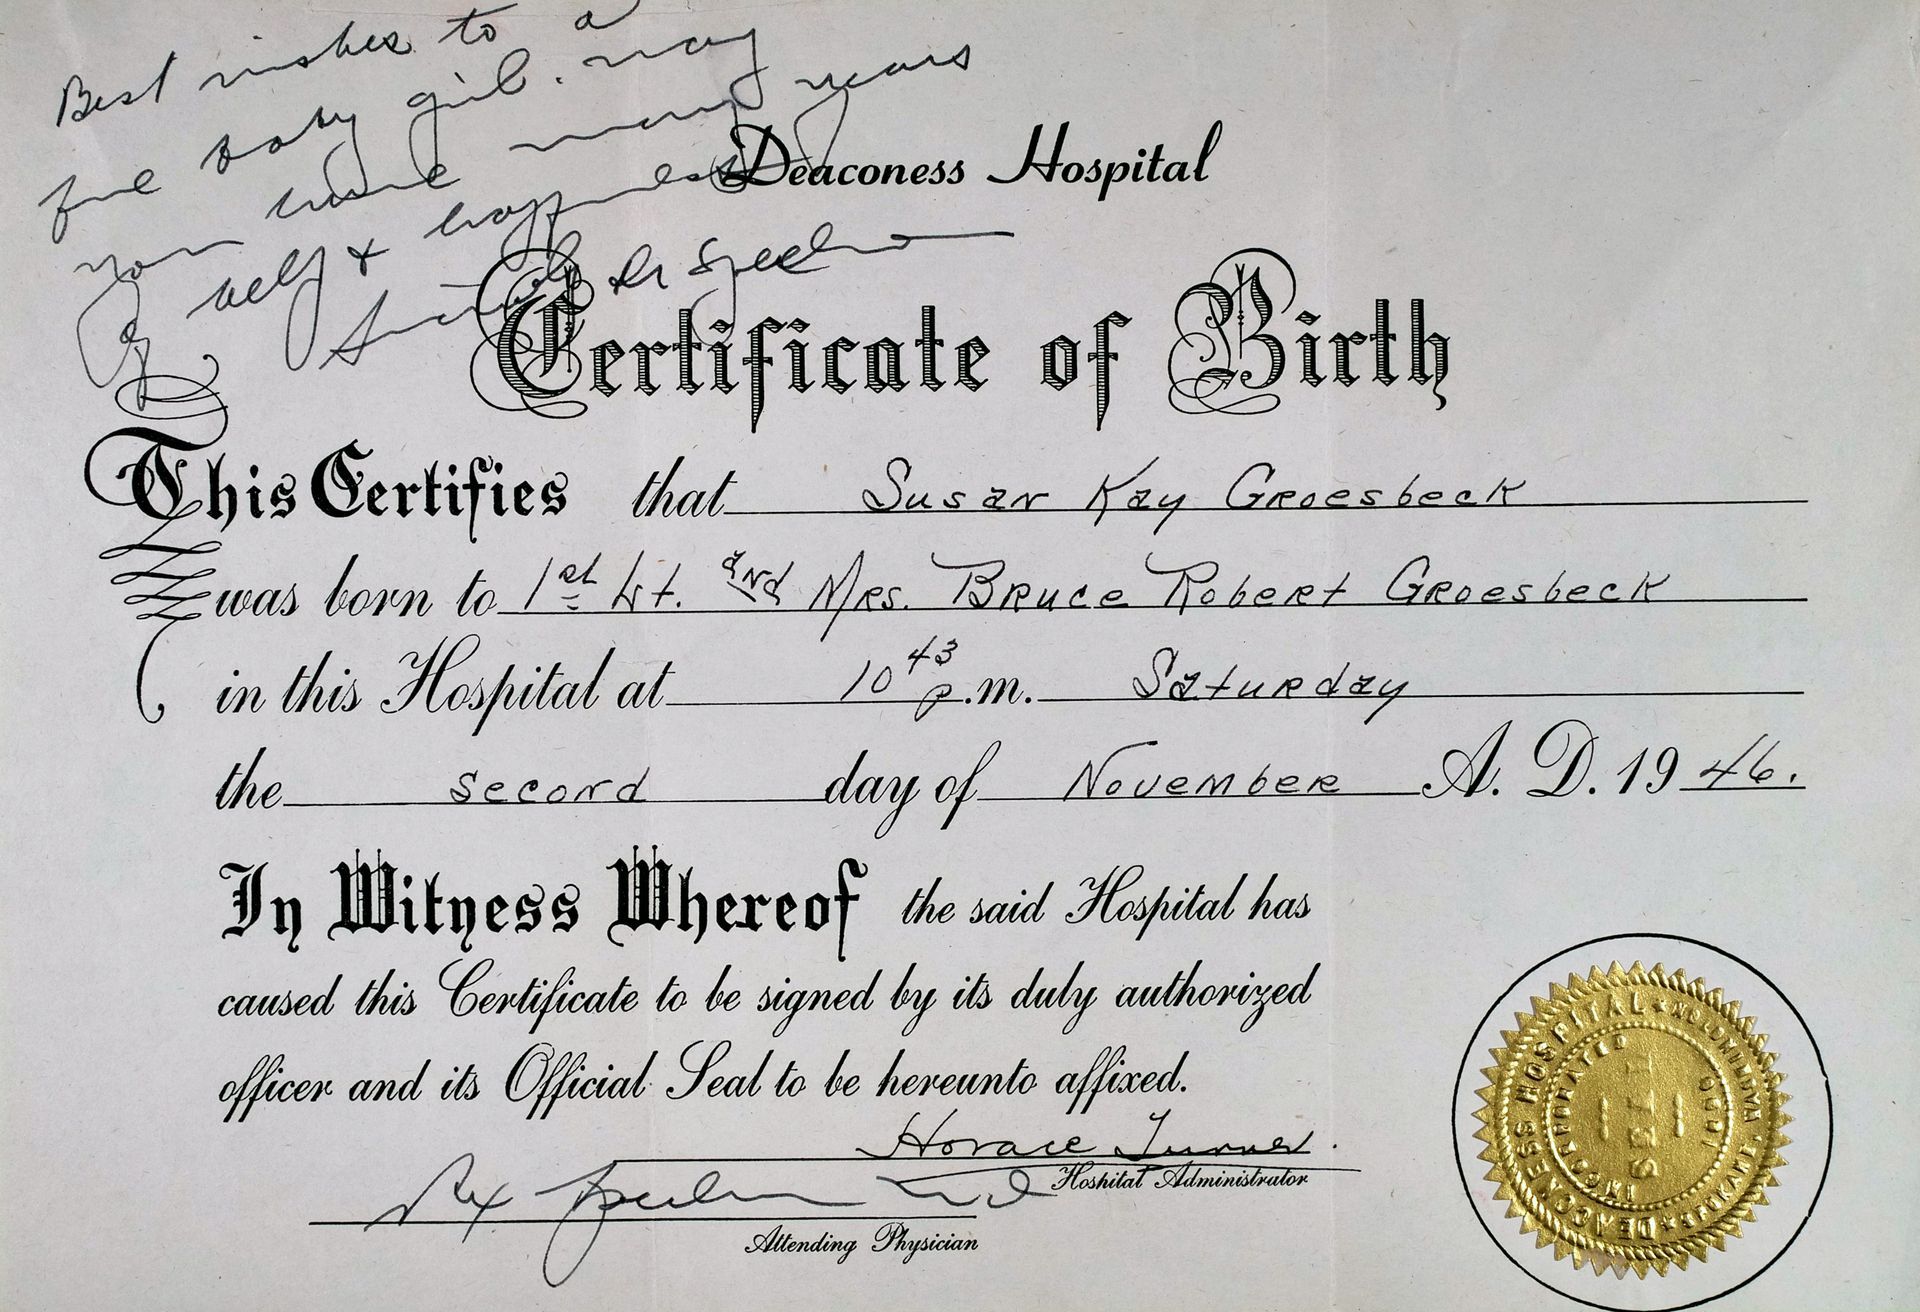 Best wishes to a
fine baby girl. may
you have many years
of help & happiness
Sincerely Dr
Deaconess Hospital
Certificate of Birth
This Certifies that Susan Kay Groesbeck
was born to 1st Lt. and Mrs. Bruce Robert Groesbeck
in this Hospital at 10 43 p.m. Saturday
the second day of November A. D. 1946.
In Witness Whereof the said Hospital has
caused this Certificate to be signed by its duly authorized
officer and its Official Seal to be hereunto affixed.
Horace Turner.
Hospital Administrator
Rex
Attending Physician
DEACONESS HOSPITAL
SPOKANE, WASHINGTON
INCORPORATED
SEAL